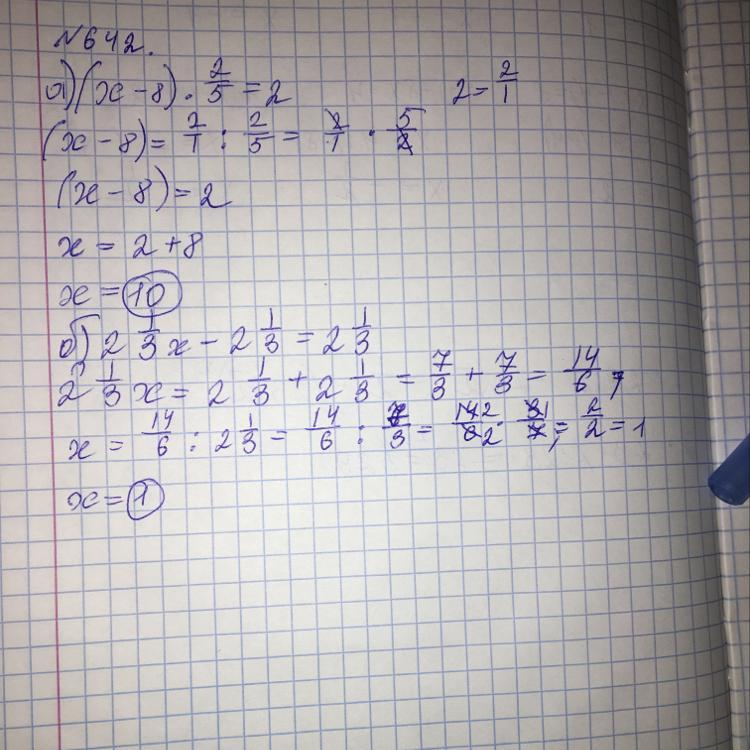 №642.
а) (x-8) · 2/5 = 2    2 = 2/1
(x-8) = 2/1 : 2/5 = 2/1 · 5/2
(x-8) = 2
x = 2+8
x = 10
б) 2 1/3 x - 2 1/3 = 2 1/3
2 1/3 x = 2 1/3 + 2 1/3 = 7/3 + 7/3 = 14/6
x = 14/6 : 2 1/3 = 14/6 : 7/3 = 14 2/6 2 · 3 1/7 1 = 2/2 = 1
x = 1